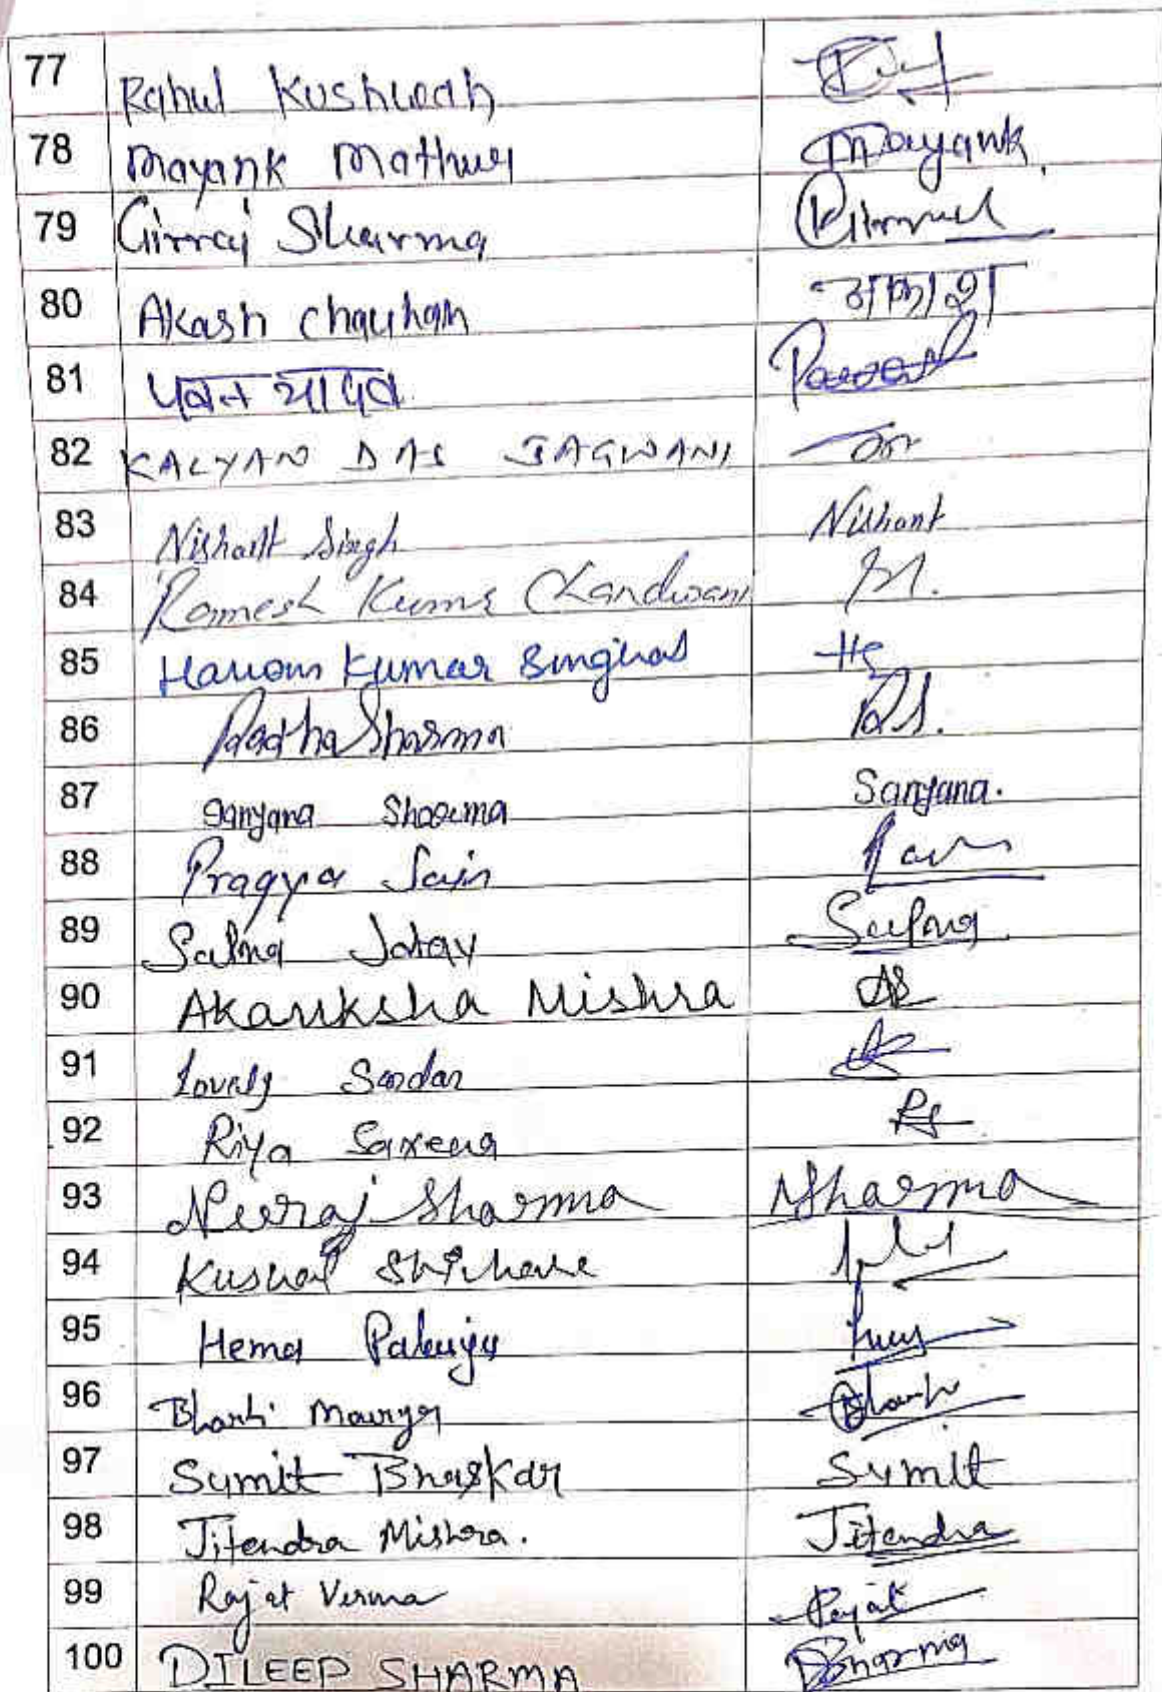 77 Rahul Kushwah
78 Mayank Mathur Mayank
79 Girraj Sharma
80 Akash Chauhan आकाश
81 पवन यादव Pawan
82 KALYAN DAS JAGWANI
83 Nishant Singh Nishant
84 Ramesh Kumar Chandwani
85 Hariom Kumar Singhal HS
86 Radha Sharma RS.
87 Sanjana Sharma Sanjana.
88 Pragya Jain
89 Salna Jatav
90 Akanksha Mishra
91 Lovely Sardar
92 Riya Saxena RS
93 Neeraj Sharma NSharma
94 Kushal
95 Hema Pahuja
96 Bharti Mourya Bharti
97 Sumit Bhaskar Sumit
98 Jitendra Mishra. Jitendra
99 Rajat Verma Rajat
100 DILEEP SHARMA DSharma